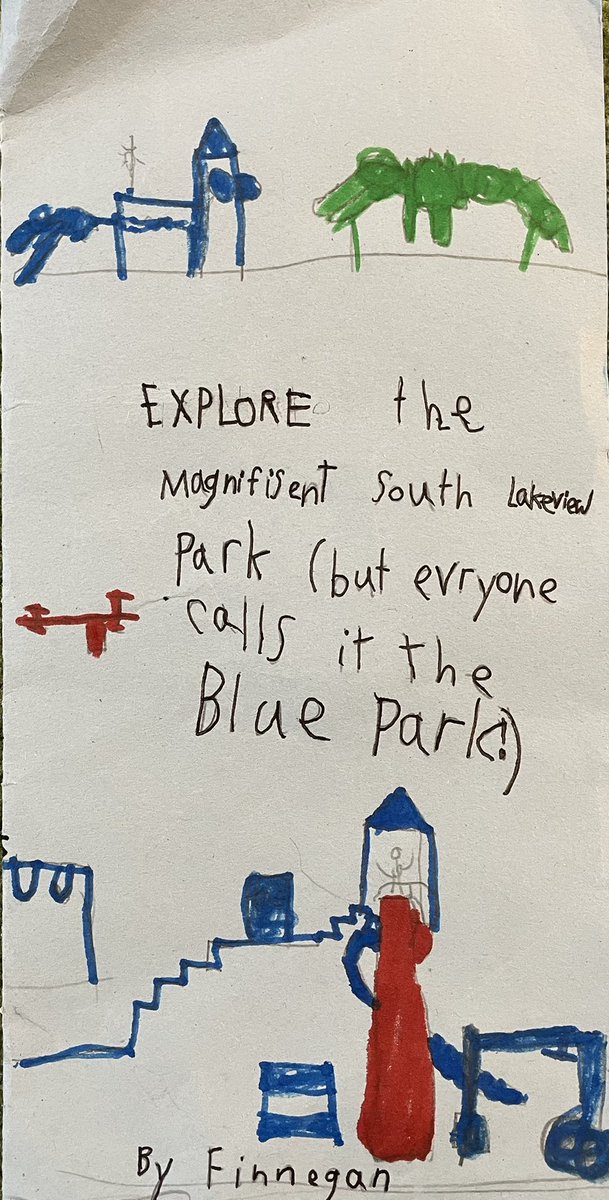 EXPLORE the
Magnifisent South Lakeview
Park (but evryone
calls it the
Blue Park!)
By Finnegan